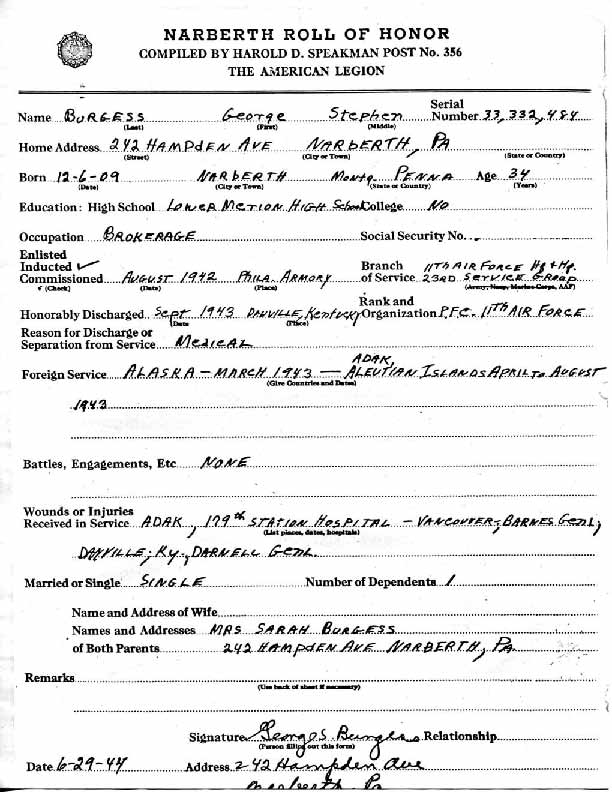 NARBERTH ROLL OF HONOR
COMPILED BY HAROLD D. SPEAKMAN POST No. 356
THE AMERICAN LEGION
Name BURGESS George Stephen Serial Number 33,332,484
(Last) (First) (Middle)
Home Address 242 HAMPDEN AVE NARBERTH, PA
(Street) (City or Town) (State or Country)
Born 12-6-09 NARBERTH Montg. PENNA Age 34
(Date) (City or Town) (State or Country) (Years)
Education: High School LOWER MERION HIGH School College NO
Occupation BROKERAGE Social Security No.
Enlisted
Inducted ✓ Branch 11TH AIR FORCE Hq + Hq.
Commissioned AUGUST 1942 PHILA. ARMORY of Service 23RD SERVICE GROUP
✓ (Check) (Date) (Place) (Army, Navy, Marine Corps, AAF)
Rank and
Honorably Discharged Sept 1943 DANVILLE, Kentucky Organization P.F.C. 11TH AIR FORCE
Date (Place)
Reason for Discharge or
Separation from Service MEDICAL
ADAK,
Foreign Service ALASKA - MARCH 1943 - ALEUTIAN ISLANDS APRIL TO AUGUST
(Give Countries and Dates)
1943
Battles, Engagements, Etc NONE
Wounds or Injuries
Received in Service ADAK, 179th STATION HOSPITAL - VANCOUVER, BARNES GENL,
(List places, dates, hospitals)
DANVILLE, Ky., DARNELL GENL
Married or Single SINGLE Number of Dependents 1
Name and Address of Wife
Names and Addresses MRS SARAH BURGESS
of Both Parents 242 HAMPDEN AVE NARBERTH, PA
Remarks
(Use back of sheet if necessary)
Signature George S. Burgess Relationship
(Person filling out this form)
Date 6-29-44 Address 242 Hampden Ave
Narberth Pa